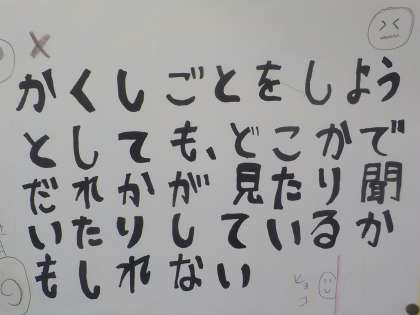 かくしごとをしよう
としても、どこかで
だれかが見たり聞
いたりしているか
もしれない